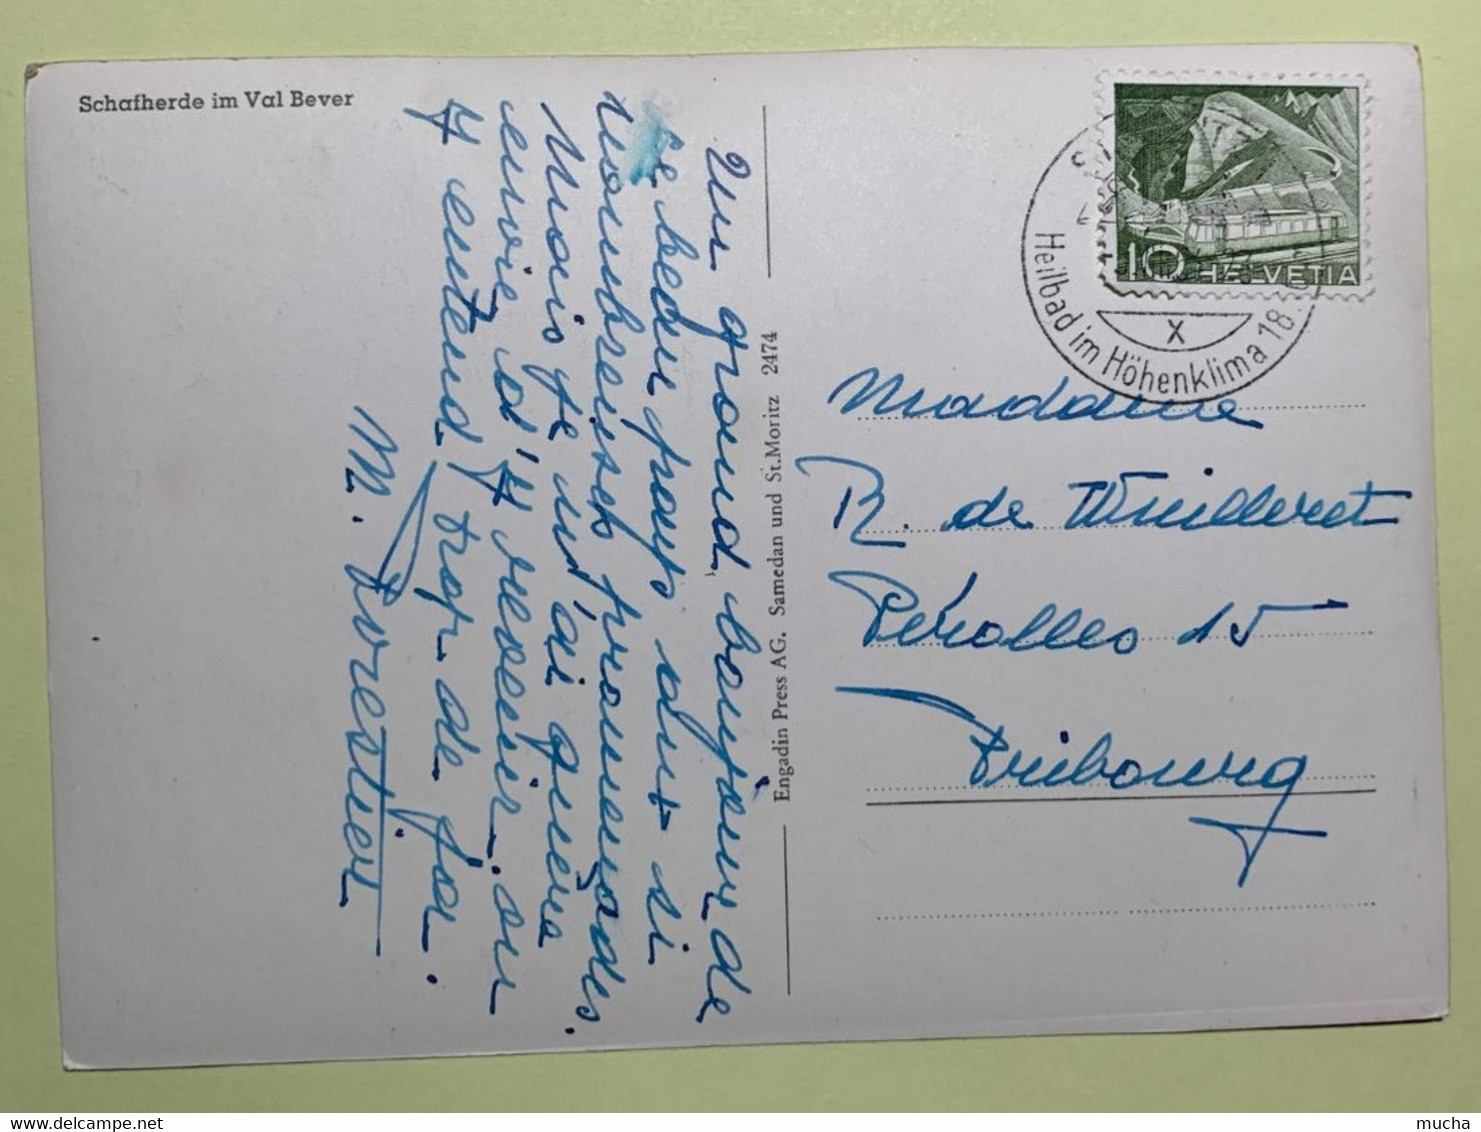 Schafherde im Val Bever
Un grand bonjour de
ce beau pays aux si
nombreuses promenades.
Mais je n'ai guère
envie d'y revenir. on
y entend trop de
M. Forestier
Engadin Press AG. Samedan und St. Moritz 2474
10 HELVETIA
Heilbad im Höhenklima 18
X
Madame
R. de Wuilleret
Pérolles 15
Fribourg
delcampe.net
mucha